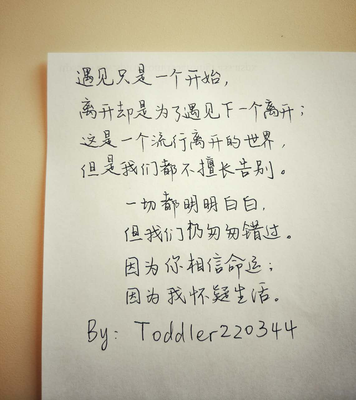 遇见只是一个开始，
离开却是为了遇见下一个离开；
这是一个流行离开的世界，
但是我们都不擅长告别。
一切都明明白白，
但我们仍匆匆错过。
因为你相信命运；
因为我怀疑生活。
By: Toddler220344